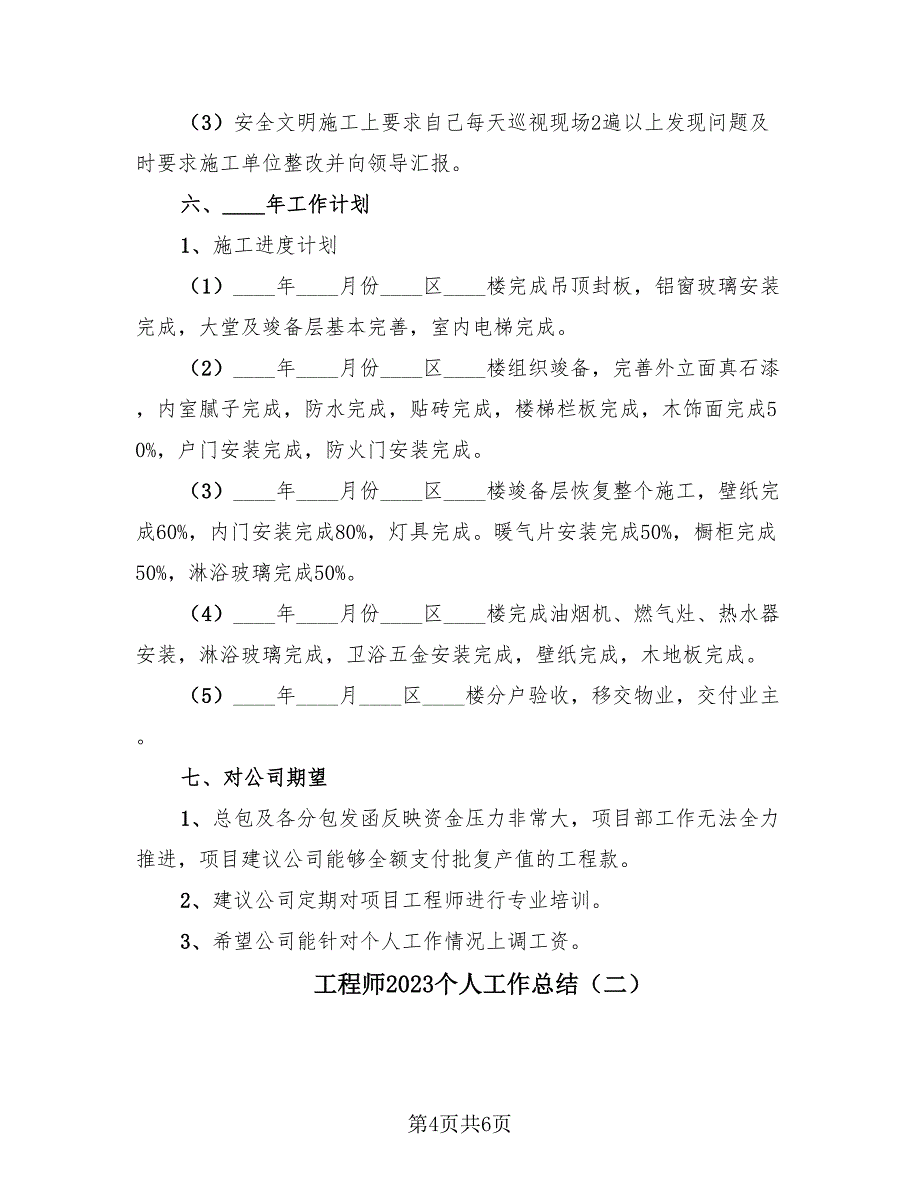 （3）安全文明施工上要求自己每天巡视现场2遍以上发现问题及
时要求施工单位整改并向领导汇报。
六、____年工作计划
1、施工进度计划
（1）____年____月份____区____楼完成吊顶封板，铝窗玻璃安装
完成，大堂及竣备层基本完善，室内电梯完成。
（2）____年____月份____区____楼组织竣备，完善外立面真石漆
，内室腻子完成，防水完成，贴砖完成，楼梯栏板完成，木饰面完成5
0%，户门安装完成，防火门安装完成。
（3）____年____月份____区____楼竣备层恢复整个施工，壁纸完
成60%，内门安装完成80%，灯具完成。暖气片安装完成50%，橱柜完成
50%，淋浴玻璃完成50%。
（4）____年____月份____区____楼完成油烟机、燃气灶、热水器
安装，淋浴玻璃完成，卫浴五金安装完成，壁纸完成，木地板完成。
（5）____年____月____区____楼分户验收，移交物业，交付业主
。
七、对公司期望
1、总包及各分包发函反映资金压力非常大，项目部工作无法全力
推进，项目建议公司能够全额支付批复产值的工程款。
2、建议公司定期对项目工程师进行专业培训。
3、希望公司能针对个人工作情况上调工资。
工程师2023个人工作总结（二）
第4页共6页